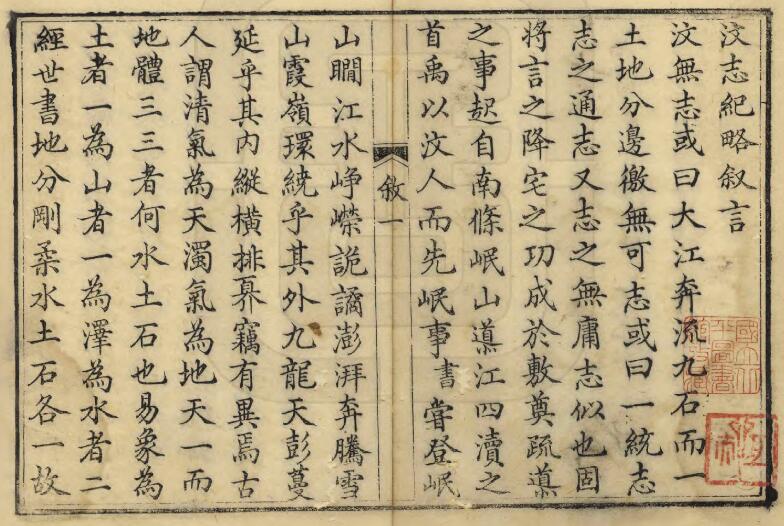 汶志紀略叙言
汶無志或曰大江奔流九石而一
土地分邊徼無可志或曰一統志
志之通志又志之無庸志似也固
將言之降宅之功成於敷奠疏導
之事起自南條岷山導江四瀆之
首禹以汶人而先岷事書嘗登岷
敘一
山瞷江水崢嶸詭譎澎湃奔騰雪
山霞嶺環繞乎其外九龍天彭蔓
延乎其内縱橫排奡竊有異焉古
人謂清氣為天濁氣為地天一而
地體三三者何水土石也易象為
土者一為山者一為澤為水者二
經世書地分剛柔水土石各一故